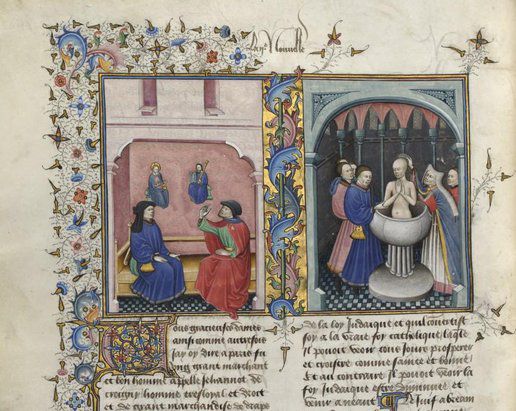 Nouvelle
ous gracieuses dames
amis comme autrefois
Jay oy dire a paris fu
ung grant marchant
et bon homme appelle Jehannot de
homme tresloyal et droit
et de grant marchandise de draps
de la loy Judaique et quil convertist
soy a la vraie foy catholique laqle
Il pouoit veoir tous Jours prosperer
et croistre comme sainte et bonne
Et au contraire Il pouoit veoir la
foy Judaique estre diminuee et
venir a neant Le Juif abream